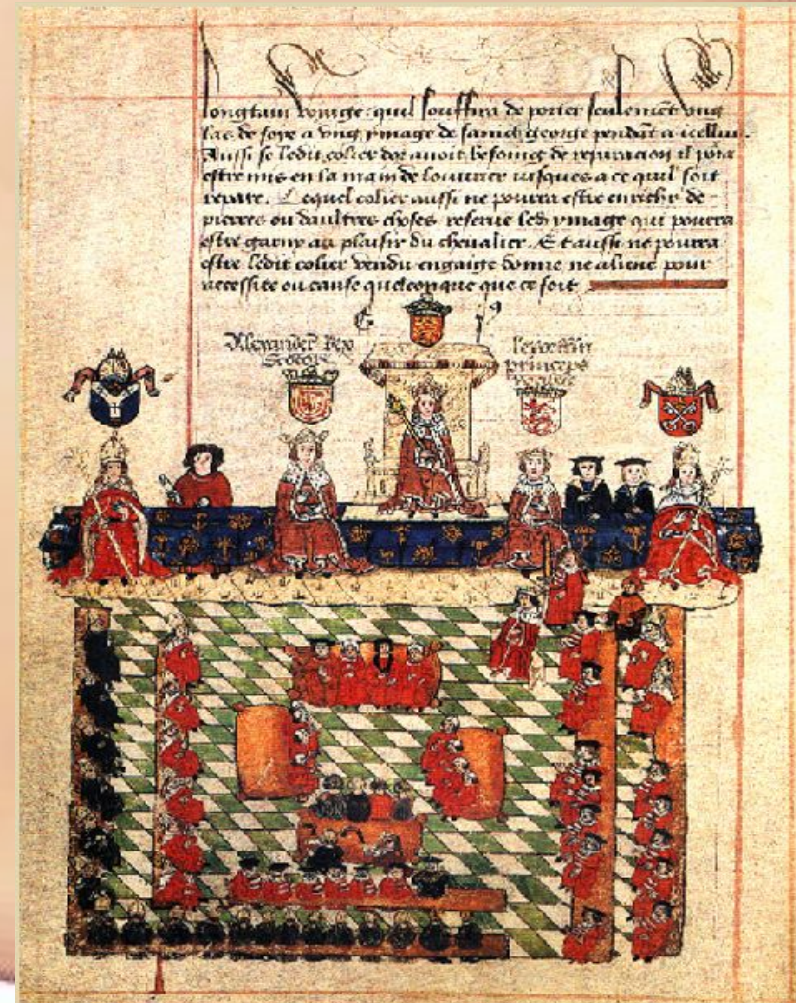 longtain voiaige quil souffira de porter seulement vng
las de soye a vng ymage de sainct george pendāt a icelluy.
Aussi se ledit colier dor auoit besoing de reparacion il pora
estre mis en la main de louurier iusques a ce quil soit
repare. Lequel colier aussi ne pourra estre enrichy de
pierres ou daultres choses reserue ledit ymage qui pourra
estre garny au plaisir du cheualier. Et aussi ne pourra
estre ledit colier vendu engaige donne ne aliene pour
necessite ou cause quelconque que ce soit
Alexander Rex
Scotor
princeps